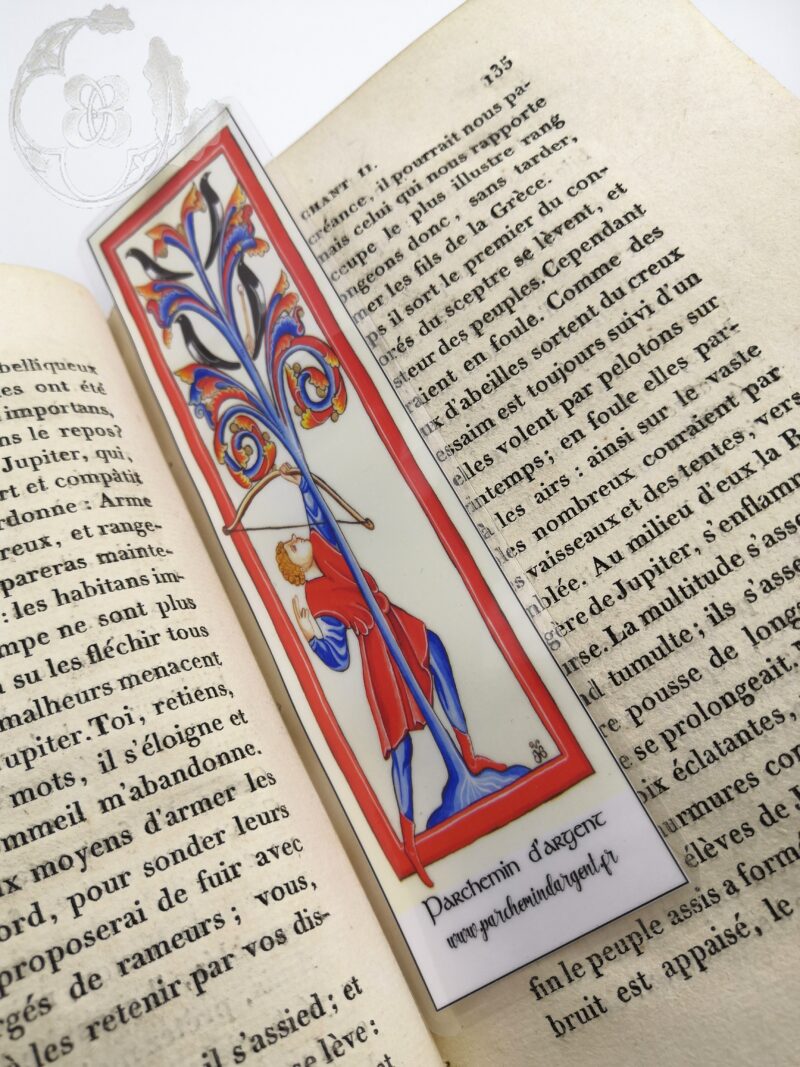 belliqueux
ont été
importans,
le repos?
Jupiter, qui,
et compâtit
ordonne : Arme
et range-
pareras mainte-
: les habitans im-
ne sont plus
su les fléchir tous
malheurs menacent
Jupiter. Toi, retiens,
mots, il s'éloigne et
m'abandonne.
moyens d'armer les
pour sonder leurs
proposerai de fuir avec
de rameurs ; vous,
les retenir par vos dis-
il s'assied ; et
lève :
135
CHANT II.
créance, il pourrait nous pa-
mais celui qui nous rapporte
le plus illustre rang
donc, sans tarder,
les fils de la Grèce.
il sort le premier du con-
du sceptre se lèvent, et
des peuples. Cependant
en foule. Comme des
d'abeilles sortent du creux
essaim est toujours suivi d'un
elles volent par pelotons sur
; en foule elles par-
les airs : ainsi sur le vaste
nombreux couraient par
vaisseaux et des tentes, vers
Au milieu d'eux la
de Jupiter, s'enflamm
La multitude s'asse
tumulte ; ils s'asse
pousse de long
se prolongeait.
éclatantes,
élèves de
fin le peuple assis a formé
bruit est appaisé, le
Parchemin d'argent
www.parchemindargent.fr